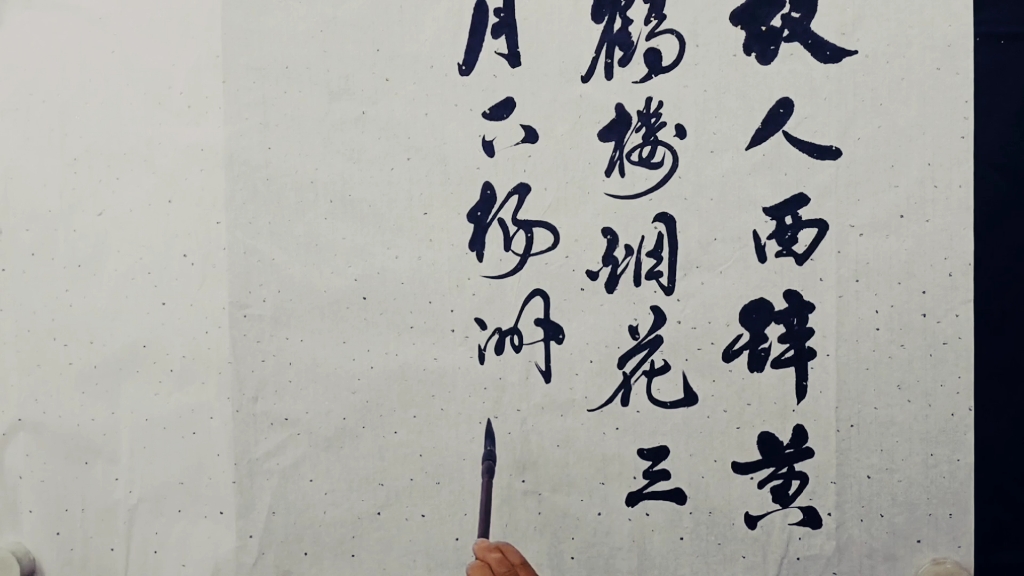 故人西辞黄
鹤楼烟花三
月下扬州